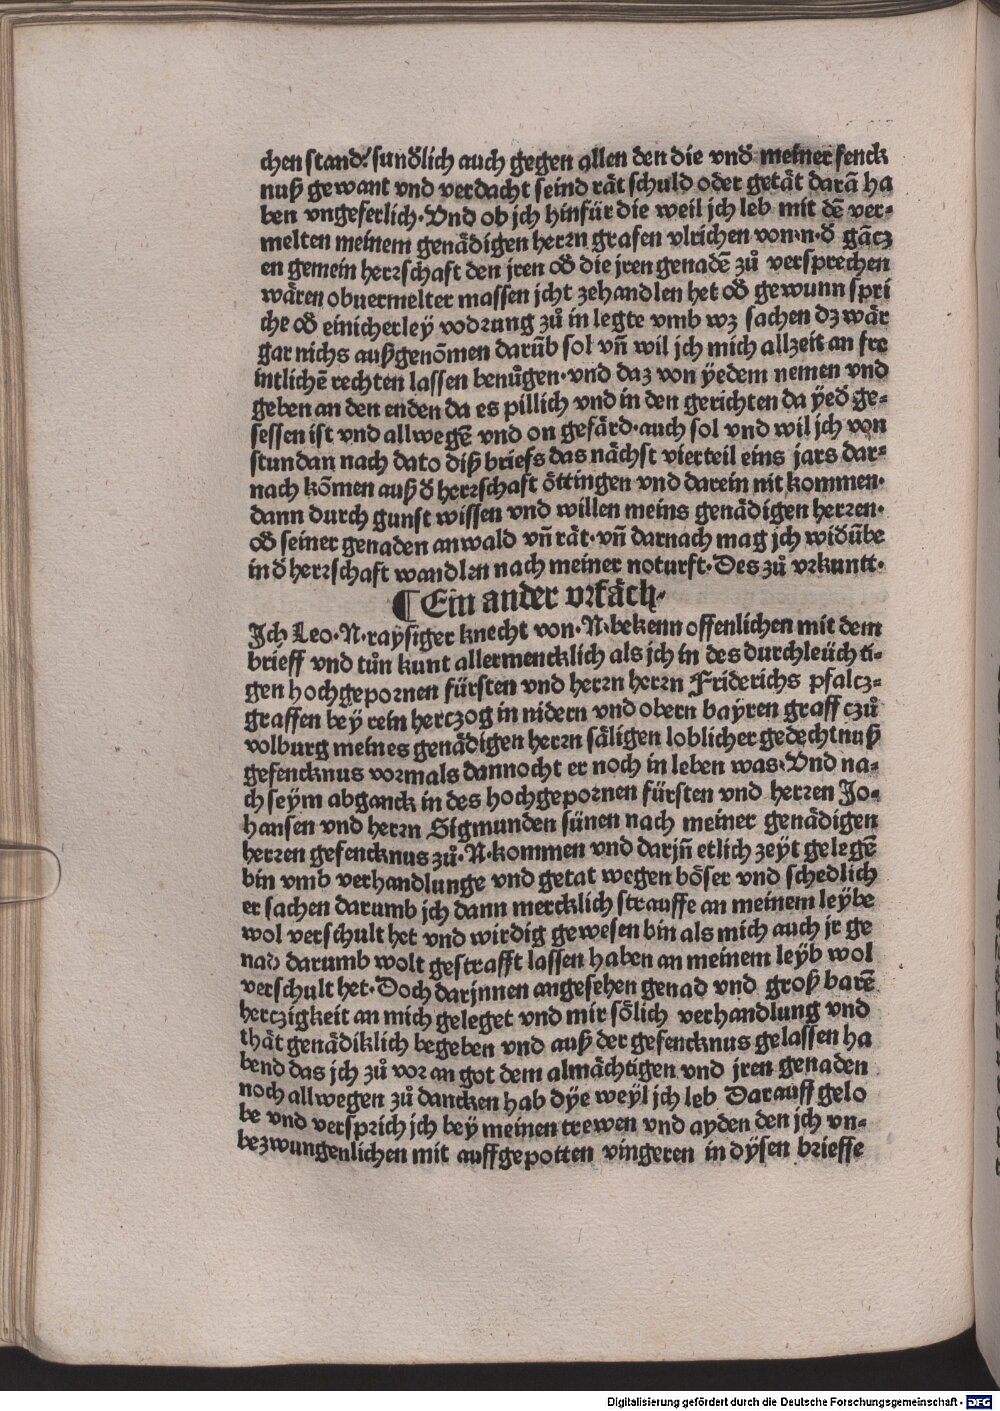 chen stand. sunđlich auch gegen allen den die vnđ meiner fenck
nuß gewant vnd verdacht seind rät schuld oder getät darā ha
ben vngeferlich·Vnd ob jch hinfür die weil jch leb mit dē ver-
melten meinem genädigen herrn grafen vlrichen von·n·đ gācz
en gemein herrschaft den jren ođ die jren genadē zů versprechen
wären obuermelter massen jcht zehandlen het ođ gewunn spri
che ođ einicherleÿ vodrung zů in legte vmb wz sachen dz wär
gar nichs außgenōmen darūb sol vñ wil jch mich allzeit an fre
intlichē rechten lassen benůgen·vnd daz von ÿedem nemen vnd
geben an den enden da es pillich vnd in den gerichten da ÿeđ ge-
sessen ist vnd allwegē vnd on gefärd·auch sol vnd wil jch von
stundan nach dato diß briefs das nächst vierteil eins jars dar-
nach kōmen auß đ herrschaft öttingen vnd darein nit kommen·
dann durch gunst wissen vnd willen meins genädigen herren·
ođ seiner genaden anwald vñ rät·vñ darnach mag jch wiđūbe
in đ herrschaft wandlrn nach meiner noturft·Des zů vrkuntt·
¶ Ein ander vrfäch·
Jch Leo·N·raÿsiger knecht von·N·bekenn offenlichen mit dem
brieff vnd tůn kunt allermencklich als jch in des durchleüchti-
gen hochgepornen fürsten vnd herrn herrn Friderichs pfalcz-
graffen beÿ rein herczog in nidern vnd obern baÿren graff czů
volburg meines genädigen herrn säligen loblicher gedechtnuß
gefencknus vormals dannocht er noch in leben was·Vnd na-
ch seÿm abganck in des hochgepornen fürsten vnd herren Jo-
hansen vnd herrn Sigmunden sünen nach meiner genädigen
herren gefencknus zů·N·kommen vnd darjñ etlich zeÿt gelegē
bin vmb verhandlunge vnd getat wegen böser vnd schedlich
er sachen darumb jch dann mercklich strauffe an meinem leÿbe
wol verschult het vnd wirdig gewesen bin als mich auch jr ge
nad darumb wolt gestrafft lassen haben an meinem leÿb wol
verschult het·Doch darjnnen angesehen genad vnd groß barē
herczigkeit an mich geleget vnd mir sölich verhandlung vnd
thät genädiklich begeben vnd auß der gefencknus gelassen ha
bend das jch zů vor an got dem almächtigen vnd jren genaden
noch allwegen zů dancken hab dÿe weÿl jch leb Darauff gelo
be vnd versprich jch beÿ meinen trewen vnd ayden den jch vn-
bezwungenlichen mit auffgepotten vingeren in dÿsen brieffe
Digitalisierung gefördert durch die Deutsche Forschungsgemeinschaft - DFG